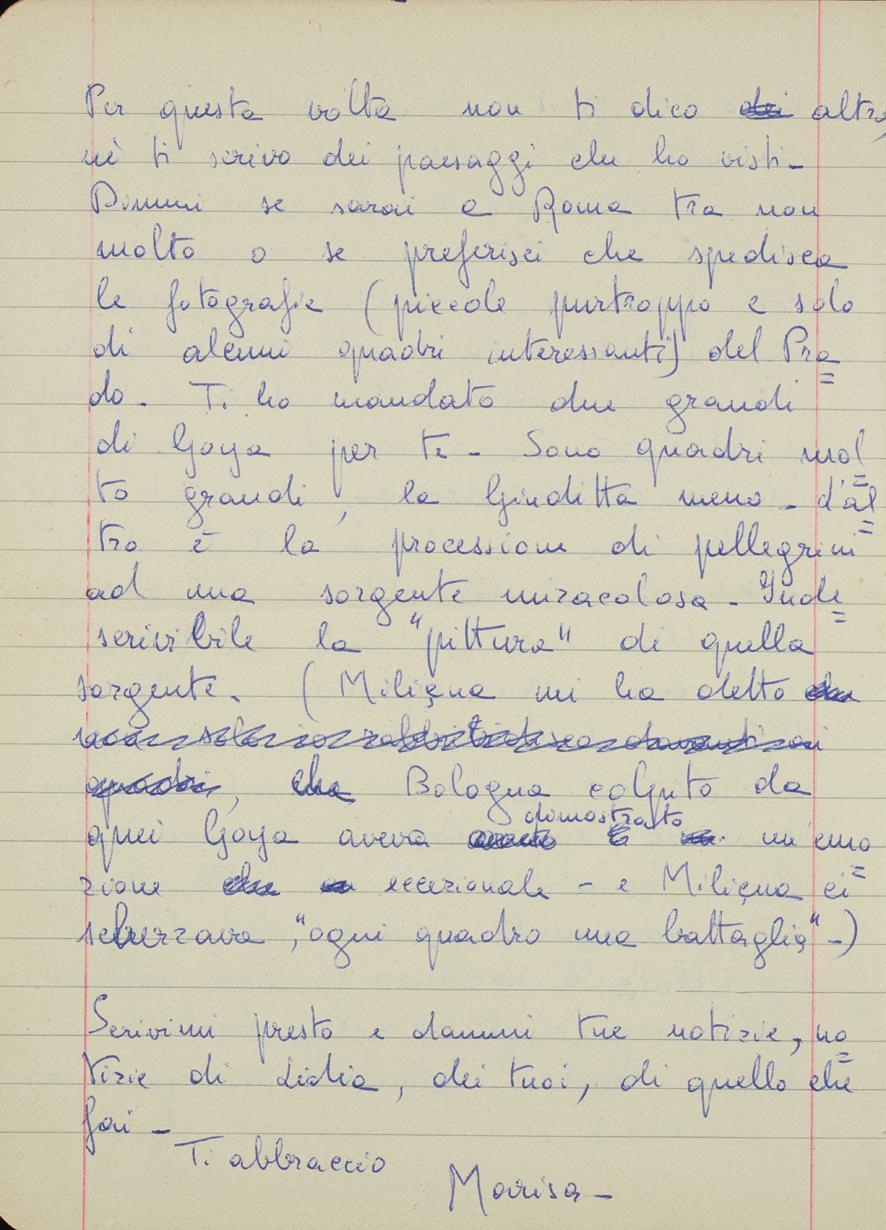 Per questa volta non ti dico dei altro,
nè ti scrivo dei paesaggi che ho visti -
Dimmi se sarai a Roma tra non
molto o se preferisci che spedisca
le fotografie (piccole purtroppo e solo
di alcuni quadri interessanti) del Pra=
do. Ti ho mandato due grandi
di Goya per te - Sono quadri mol=
to grandi, la Giuditta meno - d'al=
tro è la processione di pellegrini
ad una sorgente miracolosa - Inde=
scrivibile la "pittura" di quella
sorgente. (Miliçua mi ha detto
quadri, che Bologna colpito da
quei Goya aveva dimostrato un'emo=
zione che eccezionale - e Miliçua ci
scherzava, "ogni quadro una battaglia" -)
Scrivimi presto e dammi tue notizie, no=
tizie di Lidia, dei tuoi, di quello che
fai -
Ti abbraccio
Marisa -